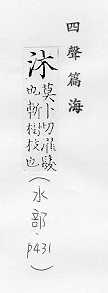 四聲篇海
莫卜切濯髮
也斬樹枝也
(水部.p431)